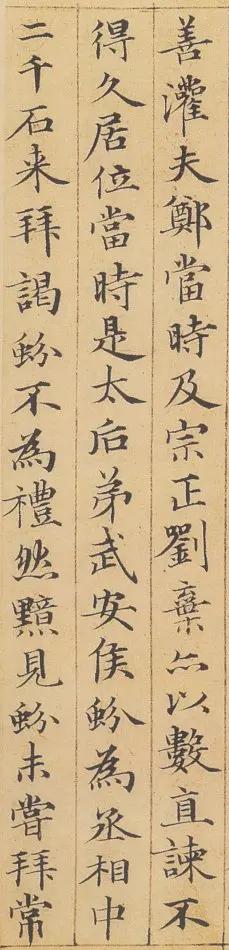 善灌夫鄭當時及宗正劉棄亦以數直諫不
得久居位當時是太后弟武安侯蚡為丞相中
二千石来拜謁蚡不為禮然黯見蚡未嘗拜常